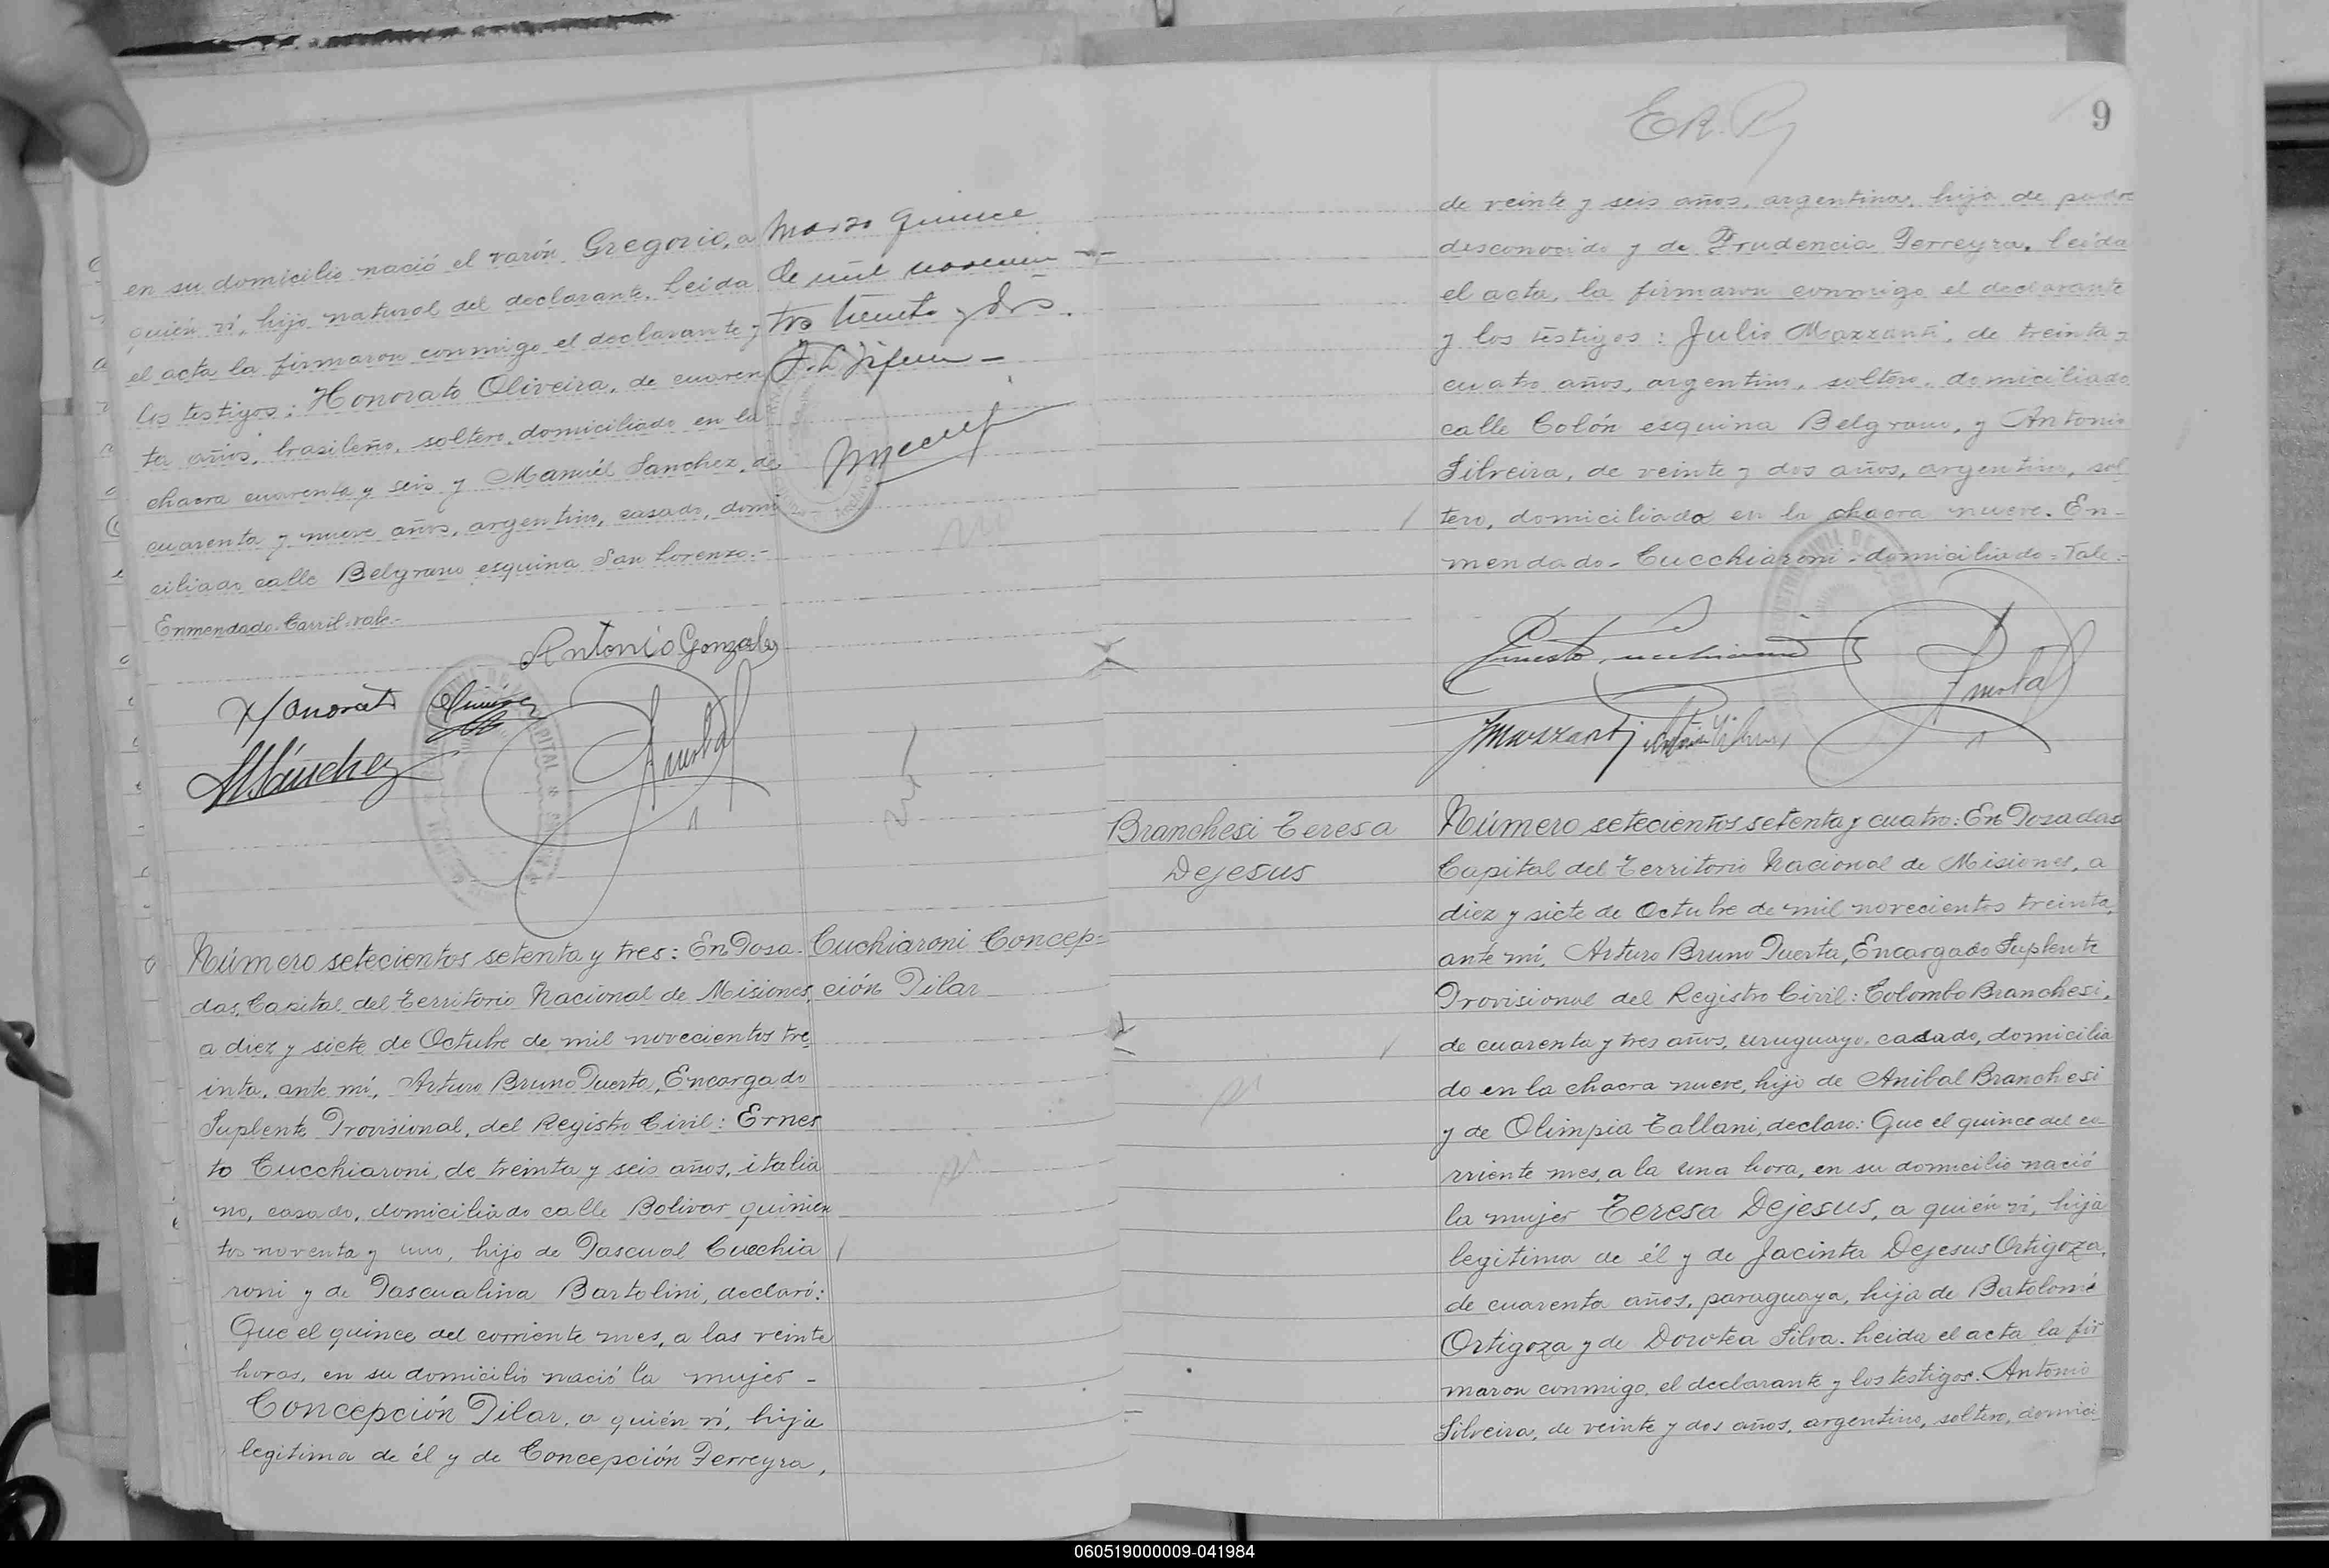 en su domicilio nació el varón Gregorio, a
quién ví, hijo natural del declarante. Leida
el acta la firmaron conmigo el declarante y
los testigos: Honorato Oliveira, de cuaren
ta años, brasileño, soltero, domiciliado en la
chacra cuarenta y seis y Manuél Sanchez, de
cuarenta y nueve años, argentino, casado, domi
ciliado calle Belgrano esquina San Lorenzo.-
Enmendado-Carril-vale-
Marzo quince
de mil novecien
tos treinta y dos.
Antonio Gonzalez
Honorato Oliveira
MSánchez
Puerta
Número setecientos setenta y tres: En Posa-
das, Capital del Territorio Nacional de Misiones,
a diez y siete de Octubre de mil novecientos tre
inta, ante mí, Arturo Bruno Puerta, Encargado
Suplente Provisional, del Registro Civil: Ernes
to Cucchiaroni, de treinta y seis años, italia
no, casado, domiciliado calle Bolivar quinien
tos noventa y uno, hijo de Pascual Cucchia
roni y de Pascualina Bartolini, declaró:
Que el quince del corriente mes, a las veinte
horas, en su domicilio nació la mujer -
Concepción Pilar, a quién ví, hija
legitima de él y de Concepción Ferreyra,
Cuchiaroni Concep=
ción Pilar
E.R.P.
9
de veinte y seis años, argentina, hija de padre
desconocido y de Prudencia Ferreyra. Leída
el acta, la firmaron conmigo el declarante
y los testigos: Julio Mazzanti, de treinta y
cuatro años, argentino, soltero, domiciliado
calle Colón esquina Belgrano, y Antonio
Silveira, de veinte y dos años, argentino, sol
tero, domiciliado en la chacra nueve. En-
mendado- Cucchiaroni-domiciliado=Vale=
Ernesto Cucchiaroni
Puerta
JMazzanti
Branchesi Teresa
Dejesus
Número setecientos setenta y cuatro: En Posadas
Capital del Territorio Nacional de Misiones, a
diez y siete de Octubre de mil novecientos treinta,
ante mí, Arturo Bruno Puerta, Encargado Suplente
Provisional del Registro Civil: Colombo Branchesi,
de cuarenta y tres años, uruguayo, casado, domicilia
do en la chacra nueve, hijo de Anibal Branchesi
y de Olimpia Tallani, declaro: Que el quince del co-
rriente mes, a la una hora, en su domicilio nació
la mujer Teresa Dejesus, a quién ví, hija
legitima de él y de Jacinta Dejesus Ortigoza,
de cuarenta años, paraguaya, hija de Batolomé
Ortigoza y de Dorotea Silva. Leida el acta la fir
maron conmigo, el declarante y los testigos: Antonio
Silveira, de veinte y dos años, argentino, soltero, domici
060519000009-041984